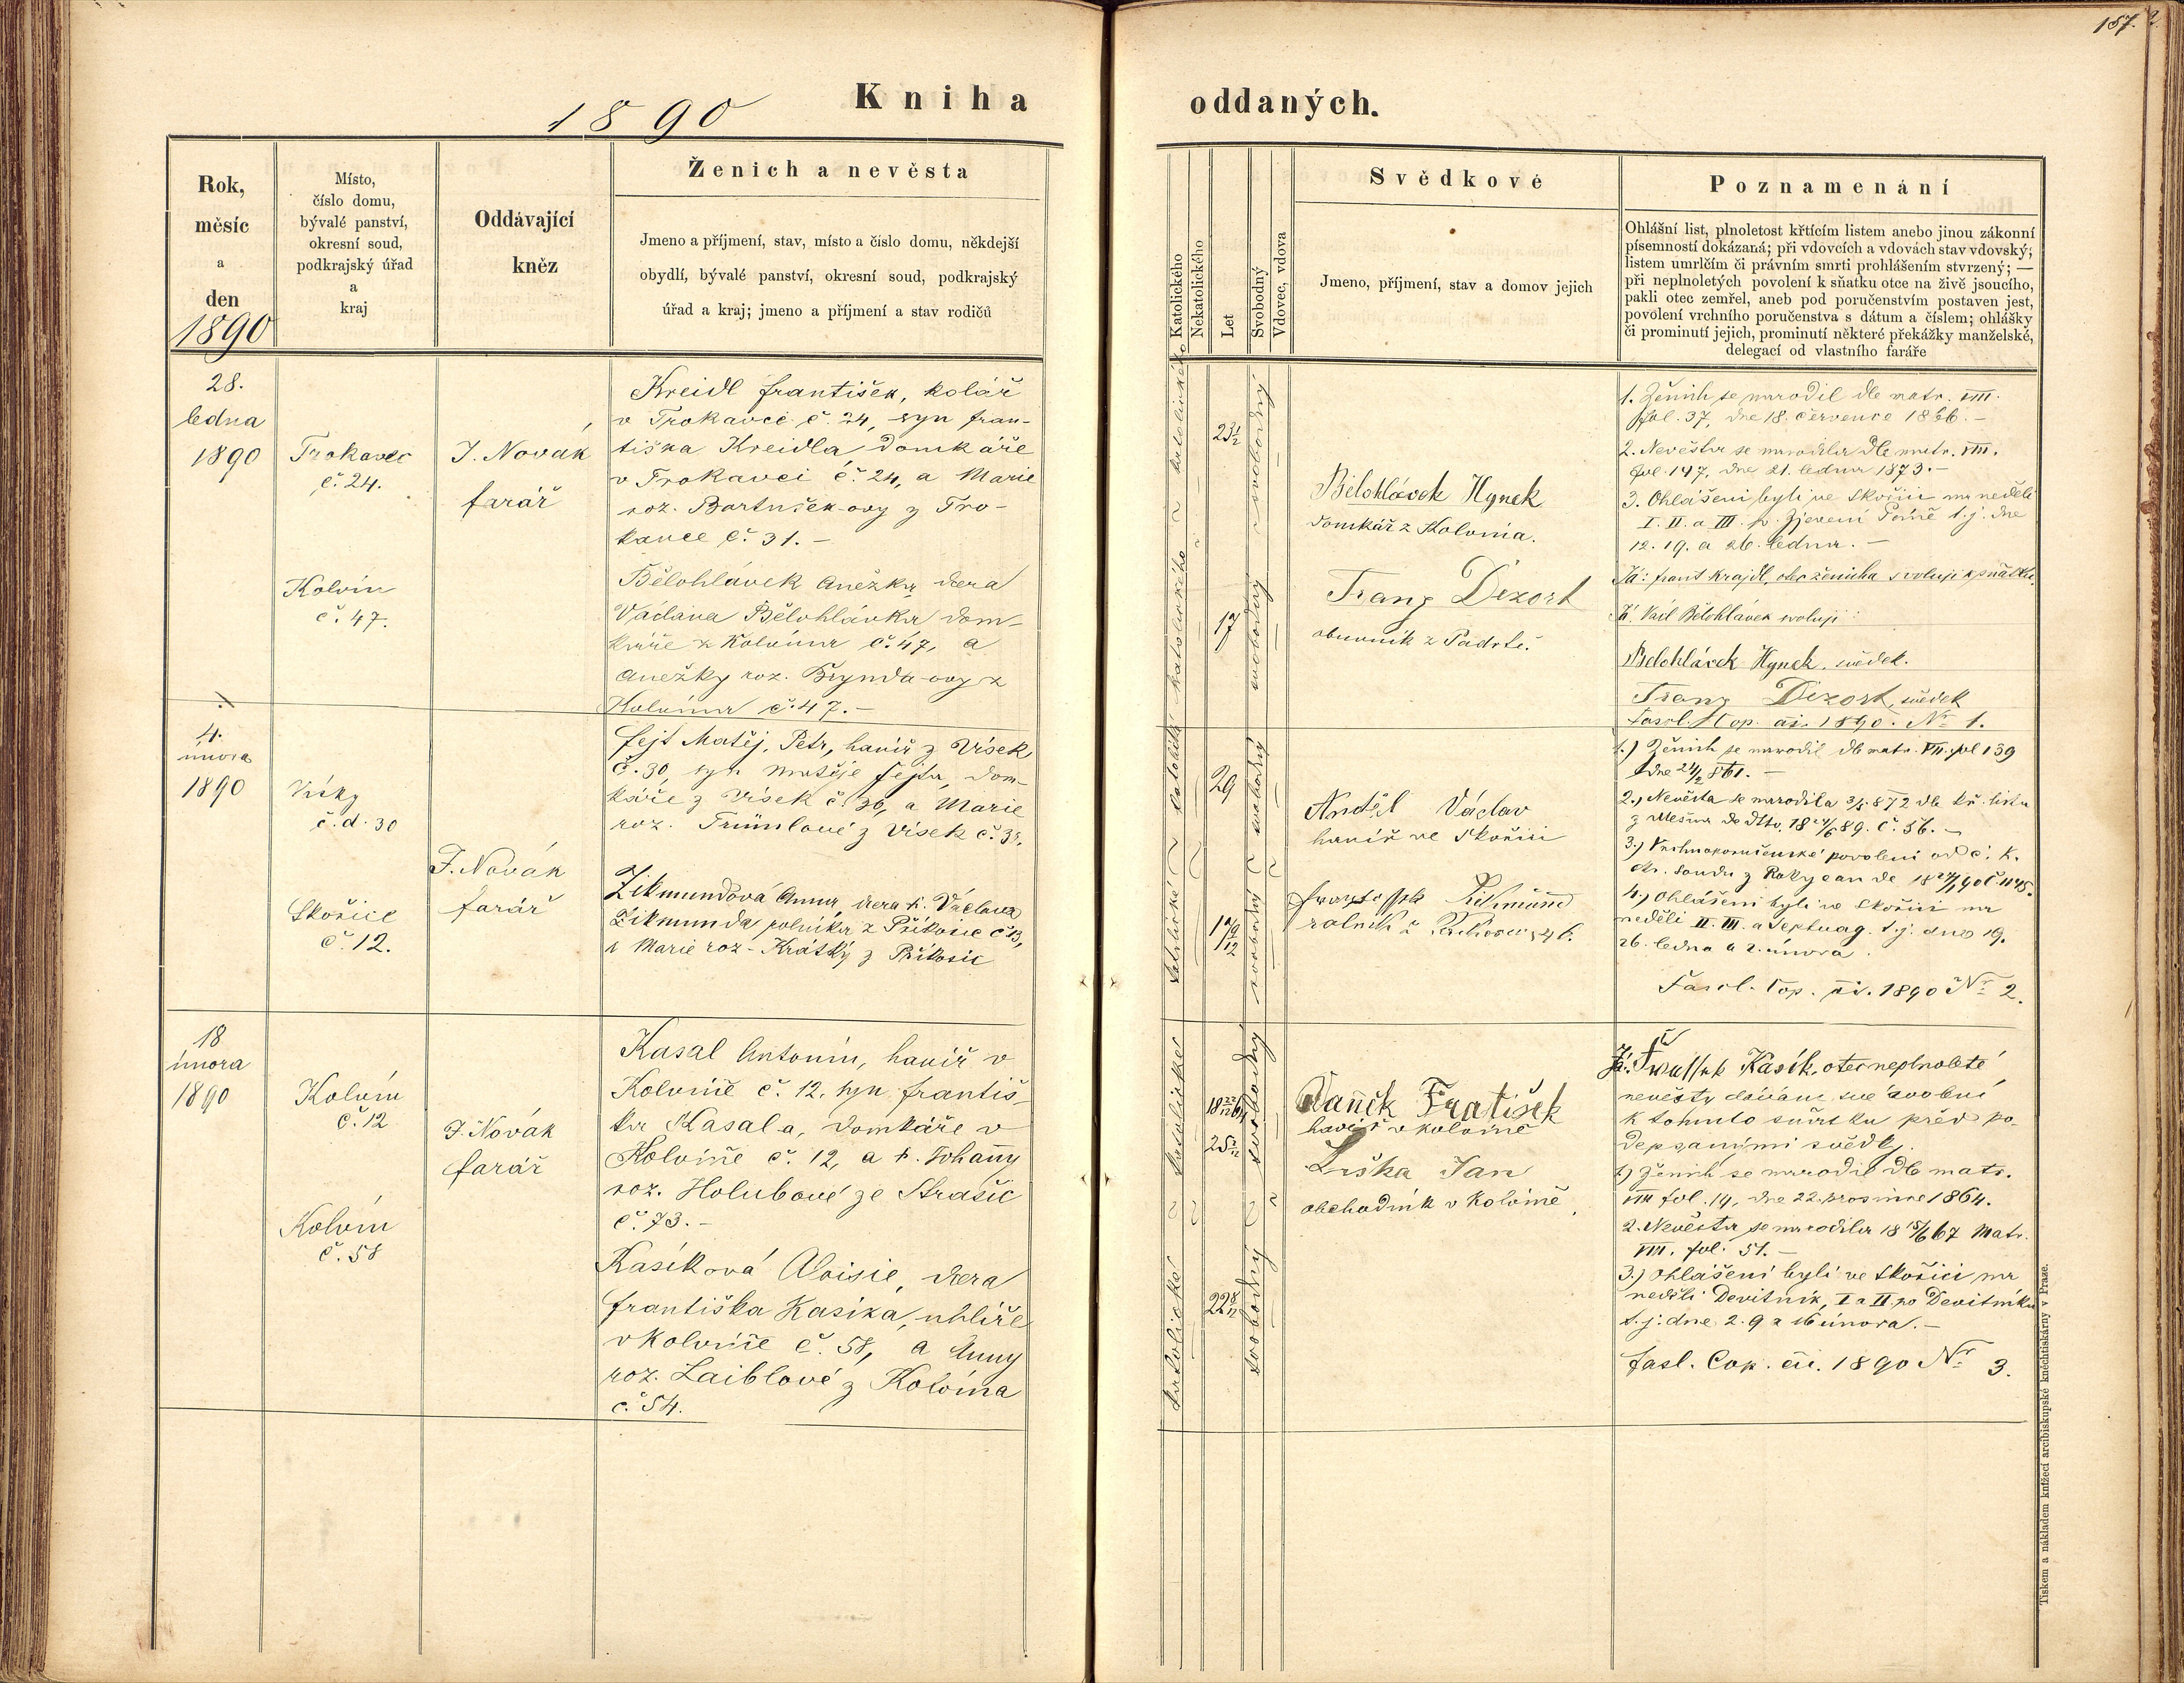 157.
1890
Kniha oddaných.
Rok,
měsíc
a
den
1890
Místo,
číslo domu,
bývalé panství,
okresní soud,
podkrajský úřad
a
kraj
Oddávající
kněz
Ženich a nevěsta
Jmeno a příjmení, stav, místo a číslo domu, někdejší
obydlí, bývalé panství, okresní soud, podkrajský
úřad a kraj; jmeno a příjmení a stav rodičů
Katolického
Nekatolického
Let
Svobodný
Vdovec, vdova
Svědkové
Jmeno, příjmení, stav a domov jejich
Poznamenání
Ohlášní list, plnoletost křtícím listem anebo jinou zákonní
písemností dokázaná; při vdovcích a vdovách stav vdovský;
listem úmrlčím či právním smrti prohlášením stvrzený; —
při neplnoletých povolení k sňatku otce na živě jsoucího,
pakli otec zemřel, aneb pod poručenstvím postaven jest,
povolení vrchního poručenstva s dátum a číslem; ohlášky
či prominutí jejich, prominutí některé překážky manželské,
delegací od vlastního faráře
28.
ledna
1890
Trokavec
č. 24.
J. Novák
farář
Kreidl František, kolář
v Trokavci č. 24, syn Fran-
tiška Kreidla, domkáře
v Trokavci č. 24, a Marie
roz. Bartušek-ovy z Tro-
kavce č. 31. —
Kolvín
č. 47.
Bělohlávek Anežka, dcera
Václava Bělohlávka dom-
káře z Kolvína č. 47, a
Anežky roz. Brynda-ovy z
Kolvína č. 47. —
katolického
svobodný
23½
17
Bělohlávek Hynek
domkář z Kolvína.
Franz Dezort
obuvník z Padrtě.
1. Ženich se narodil dle matr. VIII.
fol. 37, dne 18. července 1866. —
2. Nevěsta se narodila dle matr. VIII.
fol. 147, dne 21. ledna 1873. —
3. Ohlášeni byli ve Skořici na neděli
I. II. a III. p. Zjevení Páně t. j. dne
12. 19. a 26. ledna. —
Já: Frant Krajdl, otec ženicha svoluji k sňatku.
Já. Václ Bělohlávek svoluji
Bělohlávek Hynek. svědek.
Franz Dezort, svědek
Fascl. Cop. ai. 1890. Nr. 1.
4.
února
1890
Vísky
č. d. 30
J. Novák
farář
Fejt Matěj, Petr, havíř z Vísek
č. 30, syn Matěje Fejta, dom-
káře z Vísek č. 30, a Marie
roz. Trůmlové z Vísek č.
Skořice
č. 12.
Zikmundová Anna, dcera †. Václava
Zikmunda, rolníka z Příkosic č. 13,
a Marie roz. Krátký z Příkosic
katolické
svobodný
29
17 9/12
Anděl Václav
havíř ve Skořici
Zikmund
rolník z
1.) Ženich se narodil dle matr. VII. fol 139
dne 24/2 861. —
2., Nevěsta se narodila 3/5 872 dle kř. listu
z Mešna de dtto. 18 24/6 89. č. 56. —
3.) Vrchnoporučenské povolení od c. k.
okr. soudu z Rokycan de
4.) Ohlášeni byli ve Skořici na
neděli II. III. a Septuag. t. j. dne 19.
26. ledna a 2. února.
Fascl. Cop. ai. 1890 Nr. 2.
18
února
1890
Kolvín
č. 12
J. Novák
farář
Kasal Antonín, havíř v
Kolvíně č. 12, syn Františ-
ka Kasala, domkáře v
Kolvíně č. 12, a †. Johanny
roz. Holubové ze Strašic
č. 73. —
Kolvín
č. 58
Kasíková Aloisie, dcera
Františka Kasíka, uhlíře
v Kolvíně č. 58, a Anny
roz. Laiblové z Kolvína
č. 54.
katolické
svobodný
22 8/12
Vaněk Fratišek
havíř v Kolvíně
Liška Jan
obchodník v Kolvíně
Já: Kasík, otec neplnoleté
nevěsty dávám své svolení
k tomuto sňatku před po-
depsanými svědky.
1) Ženich se narodil dle matr.
VIII fol. 14, dne 22. prosince 1864.
2. Nevěsta se narodila 18 15/6 67 Matr.
VIII. fol. 51. —
3.) Ohlášeni byli ve Skořici na
neděli Devítník, I a II. po Devítníku
t. j. dne 2. 9 a 16 února. —
Fasl. Cop. ai. 1890 Nr. 3.
Tiskem a nákladem knížecí arcibiskupské knechtiskárny v Praze.